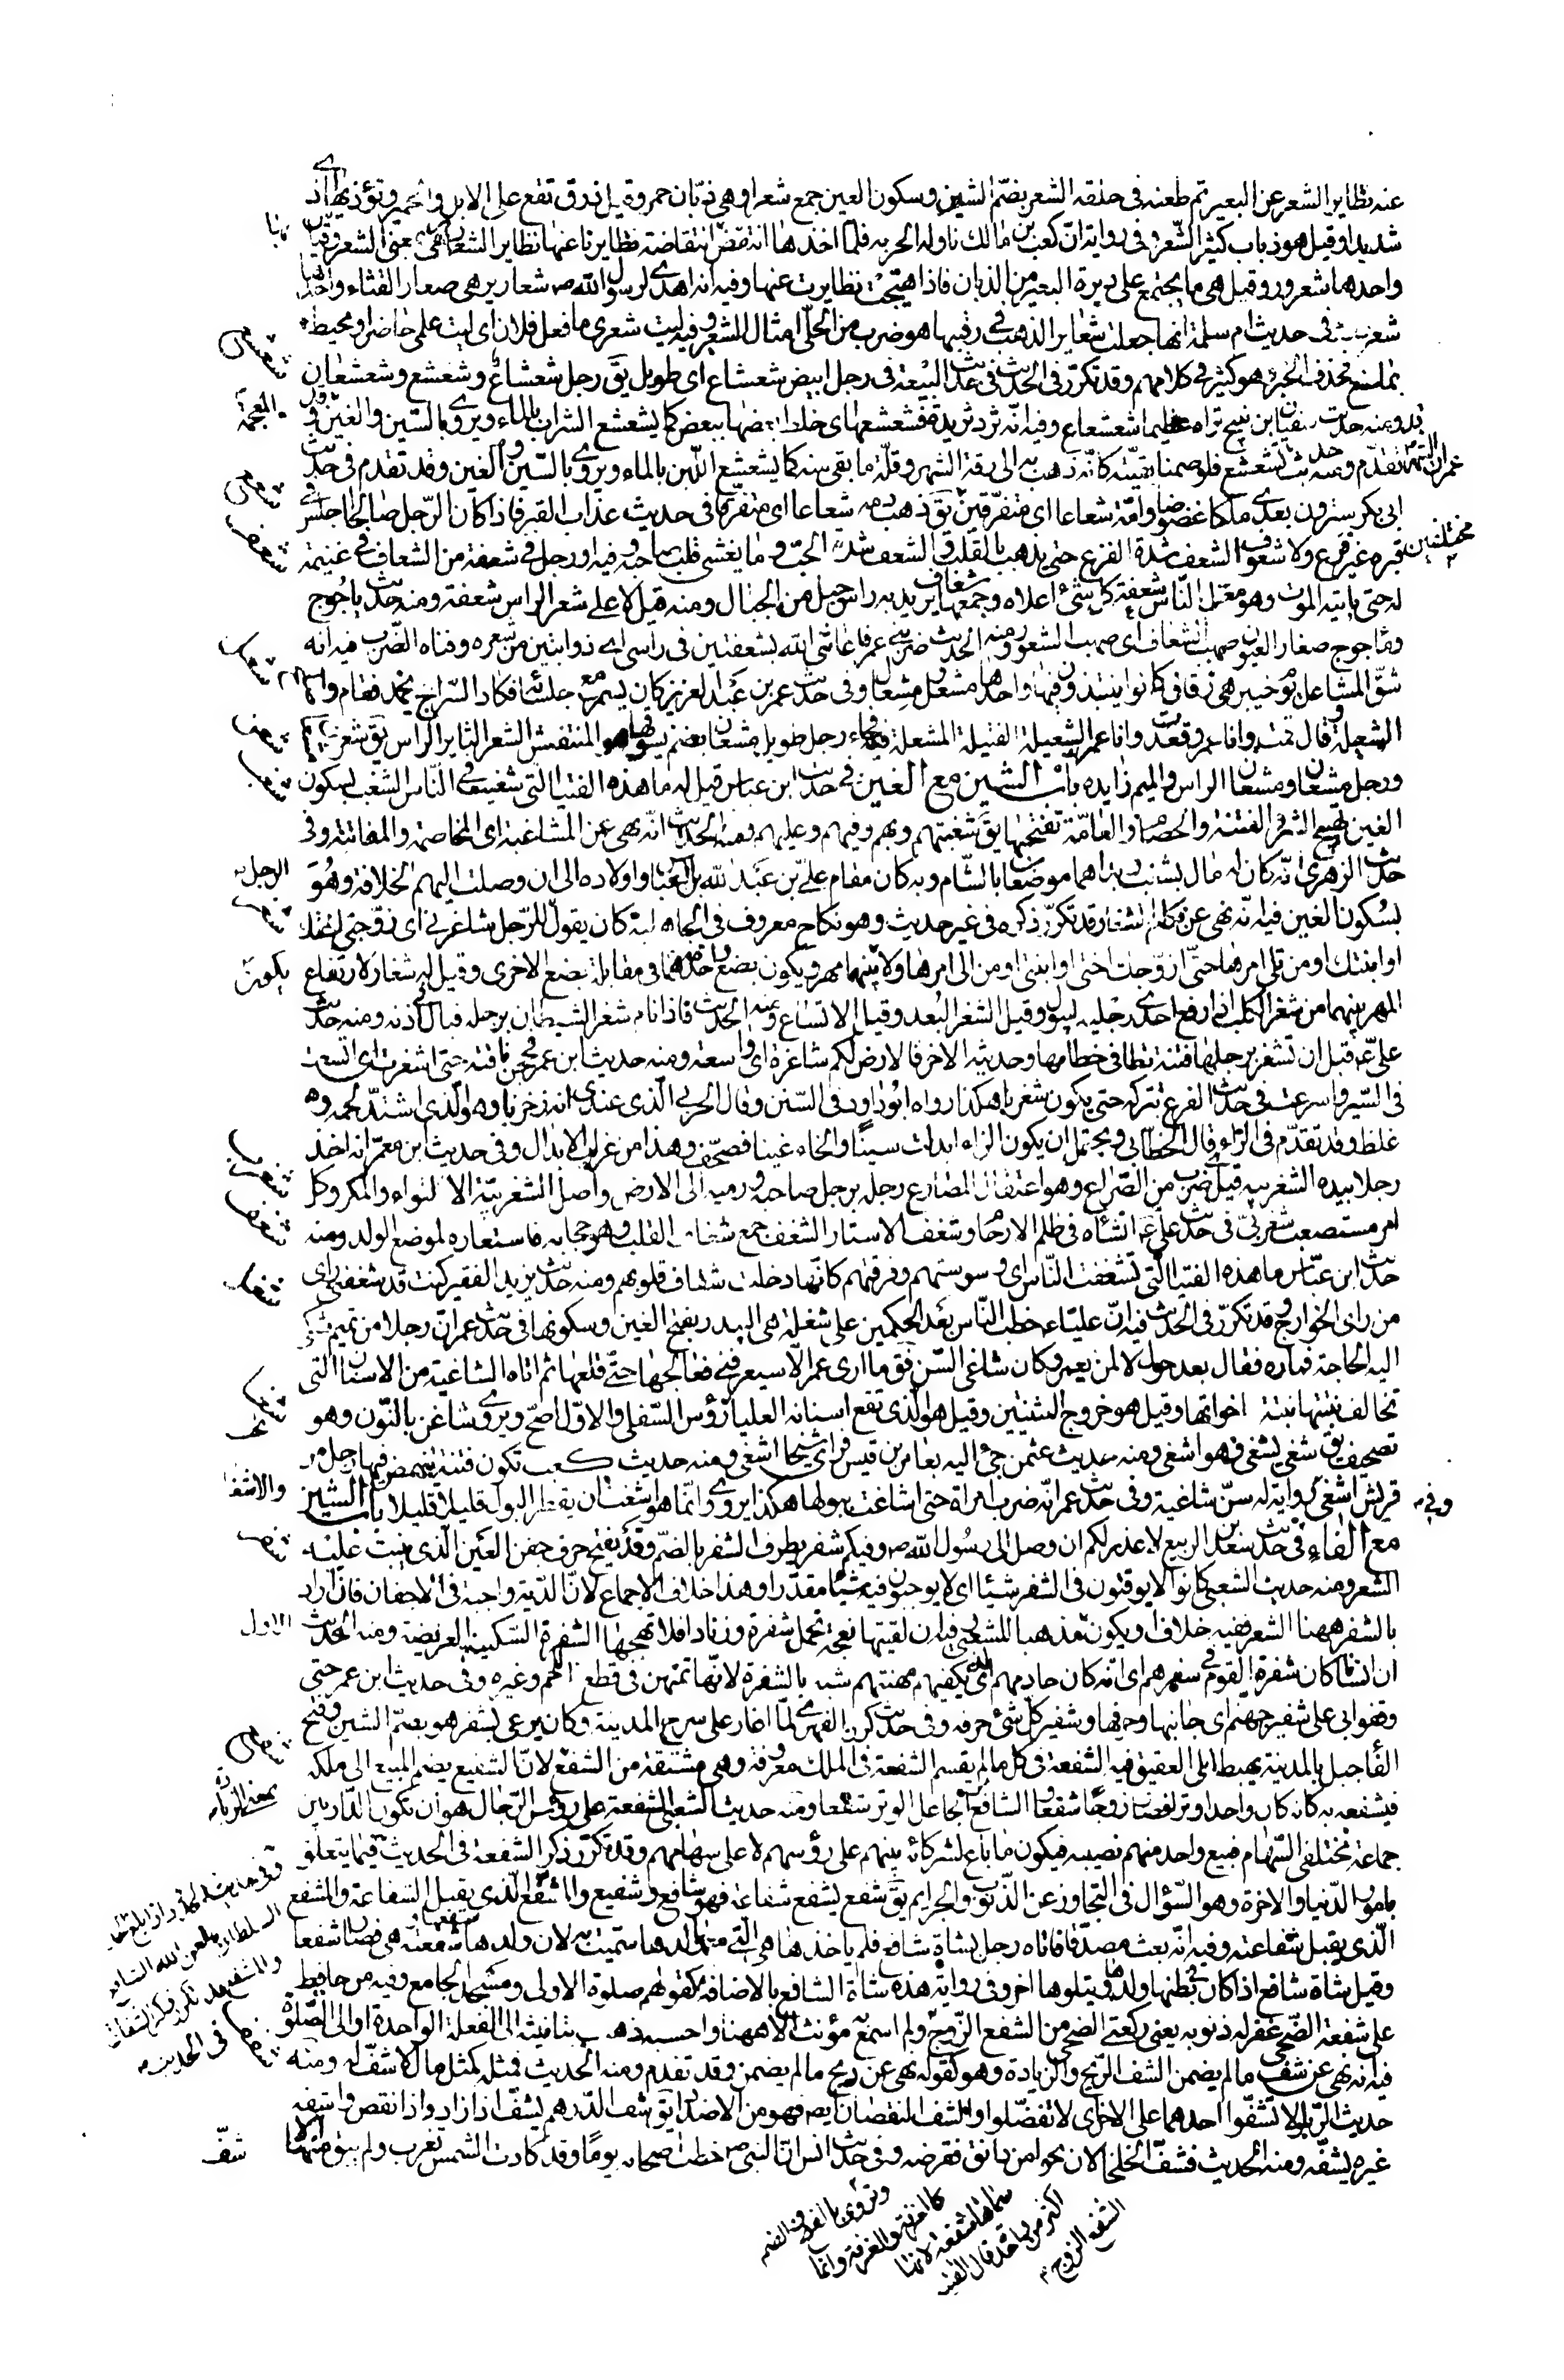 عنه تطاير الشعر عن البعير ثم طعنه فى حلقه الشعر بضم الشين وسكون العين جمع شعرا وهى ذبان حمر وقيل زرق تقع على الابل والحمير وتؤذيها اذى
شديدا وقيل هو ذباب كثير الشعر وفى رواية ان كعب بن مالك ناوله الحربه فلما اخذها انتفض انتفاضة تطايرنا عنها تطاير الشعارير هى بمعنى الشعر وقياس
واحدها شعرور وقيل هى ما يجتمع على دبرة البعير من الذبان فاذا هيجت تطايرت عنها وفيه انه اهدى لرسول الله ص شعارير هى صغار القثاء واحدها
شعرور فى حديث ام سلمة انها جعلت شعاير الذهب فى رقبتها هو ضرب من الحلى امثال الشعير وفيه ليت شعرى ما فعل فلان اى ليت علمى حاضر او محيط
بما صنع فحذف الخبر وهو كثير فى كلامهم وقد تكرر فى الحديث فى حديث البيعة فى رجل ابيض شعشاع اى طويل يق رجل شعشاع وشعشع وشعشعان
ومنه حديث سفيان بن نبيح تراه عظيما شعشعا وفيه انه ثرد ثريدة فشعشعها اى خلط بعضها ببعض كما يشعشع الشراب بالماء ويروى بالسين والغين
تقدم ومنه حديث عمران الشهر تشعشع فلو صمنا بقيته كانه ذهب به الى رقة الشهر وقلة ما بقى منه كما يشعشع اللبن بالماء ويروى بالسين والعين وقد تقدم فى حديث
ابى بكر سترون بعدى ملكا عضوضا وامة شعاعا اى متفرقين يق ذهب دمه شعاعا اى متفرقا فى حديث عذاب القبر فاذا كان الرجل صالحا جلس
قبره غير فزع ولا مشعوف الشعف شدة الفزع حتى يذهب بالقلب والشعف شدة الحب وما يغشى قلب صاحبه وفيه او رجل فى شعفة من الشعاف فى غنيمة
له حتى ياتيه الموت وهو معتزل الناس شعفة كل شئ اعلاه وجمعها شعاف يريد به راس جبل من الجبال ومنه قيل لاعلى شعر الراس شعفة ومنه حديث ياجوج
وماجوج صغار العيون صهب الشعاف اى صهب الشعور ومنه الحديث ضربنى عمر فاغاثنى الله بشعفتين فى راسى اى ذوابتين من شعره وقتاه الضرب فيه انه
شق المشاعل يوم خيبر هى زقاق كانوا ينتبذون فيها واحدها مشعل ومشعال وفى حديث عمر بن عبد العزيز كان يسمر مع جلسائه فكاد السراج يخمد فقام واصلح
الشعيلة وقال قمت وانا عمر وقعدت وانا عمر الشعيلة الفتيلة المشعلة فيه فجاء رجل طويل مشعان بغنم يسوقها هو المنتفش الشعر الثاير الراس يق شعر مشعان
ورجل مشعان ومشعان الراس والميم زايده باب الشين مع الغين فى حديث ابن عباس قيل له ما هذه الفتيا التى شغبت فى الناس الشغب بسكون
الغين تهييج الشر والفتنة والخصام والعامة تفتحها يق شغبتهم وبهم وفيهم وعليهم ومنه الحديث انه نهى عن المشاغبة اى المخاصمة والمفاتنة وفى
حديث الزهرى انه كان له مال بشغب وبدا هما موضعان بالشام وبه كان مقام على بن عبد الله بن العباس واولاده الى ان وصلت اليهم الخلافة وهو
بسكون الغين فيه انه نهى عن نكاح الشغار قد تكرر ذكره فى غير حديث وهو نكاح معروف فى الجاهلية كان يقول الرجل للرجل شاغرنى اى زوجنى اختك
او ابنتك او من تلى امرها حتى ازوجك اختى او ابنتى او من الى امرها ولا يكون بينهما مهر ويكون بضع كل واحدة منهما فى مقابلة بضع الاخرى وقيل له شغار لارتفاع
المهر بينهما من شغر الكلب اذا رفع احدى رجليه ليبول وقيل الشغر البعد وقيل الاتساع ومنه الحديث فاذا نام شغر الشيطان برجله فبال فى اذنه ومنه حديث
على ع قبل ان تشغر برجلها فتنة تطا فى خطامها وحديثه الاخر فالارض لكم شاغرة اى واسعة ومنه حديث ابن عمر فحجن ناقته حتى اشغرت اى اتسعت
فى السير واسرعت فى حديث الفرع تتركه حتى يكون شغزبا هكذا رواه ابو داود فى السنن وقال الحربى الذى عندى انه زخزبا وهو الذى اشتد لحمه و
غلظ وقد تقدم فى الزاء قال الخطابى ويحتمل ان يكون الزاء ابدلت سينا والخاء غينا فصحف وهذا من غريب الابدال وفى حديث ابن معمر انه اخذ
رجلا بيده الشغزبية قيل هى ضرب من الصراع وهو اعتقال المصارع رجله برجل صاحبه ورميه الى الارض واصل الشغزبية الالتواء والمكر وكل
امر مستصعب شغزبى فى حديث على ع انشاه فى ظلم الارحام وشغف الاستار الشغف جمع شغاف القلب وهو حجابه فاستعاره لموضع الولد ومنه
حديث ابن عباس ما هذه الفتيا التى تشغفت الناس اى وسوستهم وفرقتهم كانها دخلت شغاف قلوبهم ومنه حديث يزيد الفقير كنت قد شغفنى راى
من راى الخوارج وقد تكرر فى الحديث فيه ان عليا ع خطب الناس بعد الحكمين على شغلة هى البيدر بفتح الغين وسكونها فى حديث عمران رجلا من تميم شكى
اليه الحاجة فماره فقال بعد حول لالمن بعمر وكان شاغى السن فق ما ارى عمر الا سيعرفنى فعالجها حتى قلعها ثم اتاه الشاغية من الاسنان التى
تخالف نبتتها نبتة اخواتها وقيل هو خروج الثنيتين وقيل هو الذى تقع اسنانه العليا رؤس السفلى والاول اصح ويروى شاغن بالنون وهو
تصحيف يق شغى يشغى فهو اشغى ومنه حديث عثمن جئ اليه بعامر بن قيس فراى شيخا اشغى ومنه حديث كعب تكون فتنة ينهض فيها رجل من
قريش اشغى وفى رواية له سن شاغية وفى حديث عمر انه ضرب امراة حتى اشاغت ببولها هكذا يروى وانما هو اشغت ان يقطر البول قليلا قليلا باب الشين
مع الفاء فى حديث سعد بن الربيع لا عذر لكم ان وصل الى رسول الله ص وفيكم شفر يطرف الشفر بالضم وقد يفتح حرف جفن العين الذى ينبت عليه
الشعر ومنه حديث الشعبى كانوا لا يوقتون فى الشفر شيئا اى لا يوجبون فيه شيئا مقدرا وهذا خلاف الاجماع لان الدية واجبة فى الاجفان فان اراد
بالشفر ههنا الشعر ففيه خلاف او يكون مذهبا للشعبى فيه ان لقيتها نعجة تحمل شفرة وزنادا فلا تهجها الشفرة السكين العريضة ومنه الحديث
ان انسا كان شفرة القوم فى سفرهم اى انه كان خادمهم الذى يكفيهم مهنتهم شبه بالشفرة لانها تمتهن فى قطع اللحم وغيره وفى حديث ابن عمر حتى
وقفوا بى على شفير جهنم اى جانبها وحرفها وشفير كل شئ حرفه وفى حديث كرز الفهرى لما اغار على سرح المدينة وكان يرعى بشفر هو بضم الشين وفتح
الفا جبل بالمدينة يهبط الى العقيق فيه الشفعة فى كل ما لم يقسم الشفعة فى الملك معروفة وهى مشتقة من الشفع لان الشفيع يضم المبيع الى ملكه
فيشفعه به كانه كان واحدا وترا فصار زوجا شفعا والشافع الجاعل الوتر شفعا ومنه حديث الشعبى الشفعة على رؤس الرجال هو ان تكون الدار بين
جماعة مختلفى السهام فيبيع واحد منهم نصيبه فيكون ما باع لشركائه بينهم على رؤسهم لا على سهامهم وقد تكرر ذكر الشفعة فى الحديث فيما يتعلق
بامور الدنيا والاخرة وهو السؤال فى التجاوز عن الذنوب والجرايم يق شفع يشفع شفاعة فهو شافع وشفيع والمشفع الذى يقبل الشفاعة والمشفع
الذى يقبل شفاعته وفيه انه بعث مصدقا فاتاه رجل بشاة شافع فلم ياخذها هى التى معها ولدها سميت به لان ولدها شفعها وشفعته هى فصارا شفعا
وقيل شاة شافع اذا كان فى بطنها ولدها ويتلوها اخر وفى رواية هذه شاة الشافع بالاضافة كقولهم صلوة الاولى ومسجد الجامع وفيه من حافظ
على شفعة الضحى غفر له ذنوبه يعنى ركعتى الضحى من الشفع الزوج ولم اسمع مؤنثا الا ههنا واحسبه ذهب بتانيثه الى الفعلة الواحدة او الى الصلوة
فيه انه نهى عن شف ما لم يضمن الشف الربح والزيادة وهو كقوله نهى عن ربح ما لم يضمن وقد تقدم ومنه الحديث فمثله كمثل مال لا شف له ومنه
حديث الربا ولا تشفوا احدهما على الاخرى لا تفضلوا والشف النقصان ايضا فهو من الاضداد يق شف الدرهم يشف اذا زاد واذا نقص واشفه
غيره يشفه ومنه الحديث فشف الخلخالان نحوا من دانق فقرضه وفى حديث انس ان النبى ص خطب اصحابه يوما وقد كادت الشمس تغرب ولم يبق منها الا
شف
الشفع الزوج